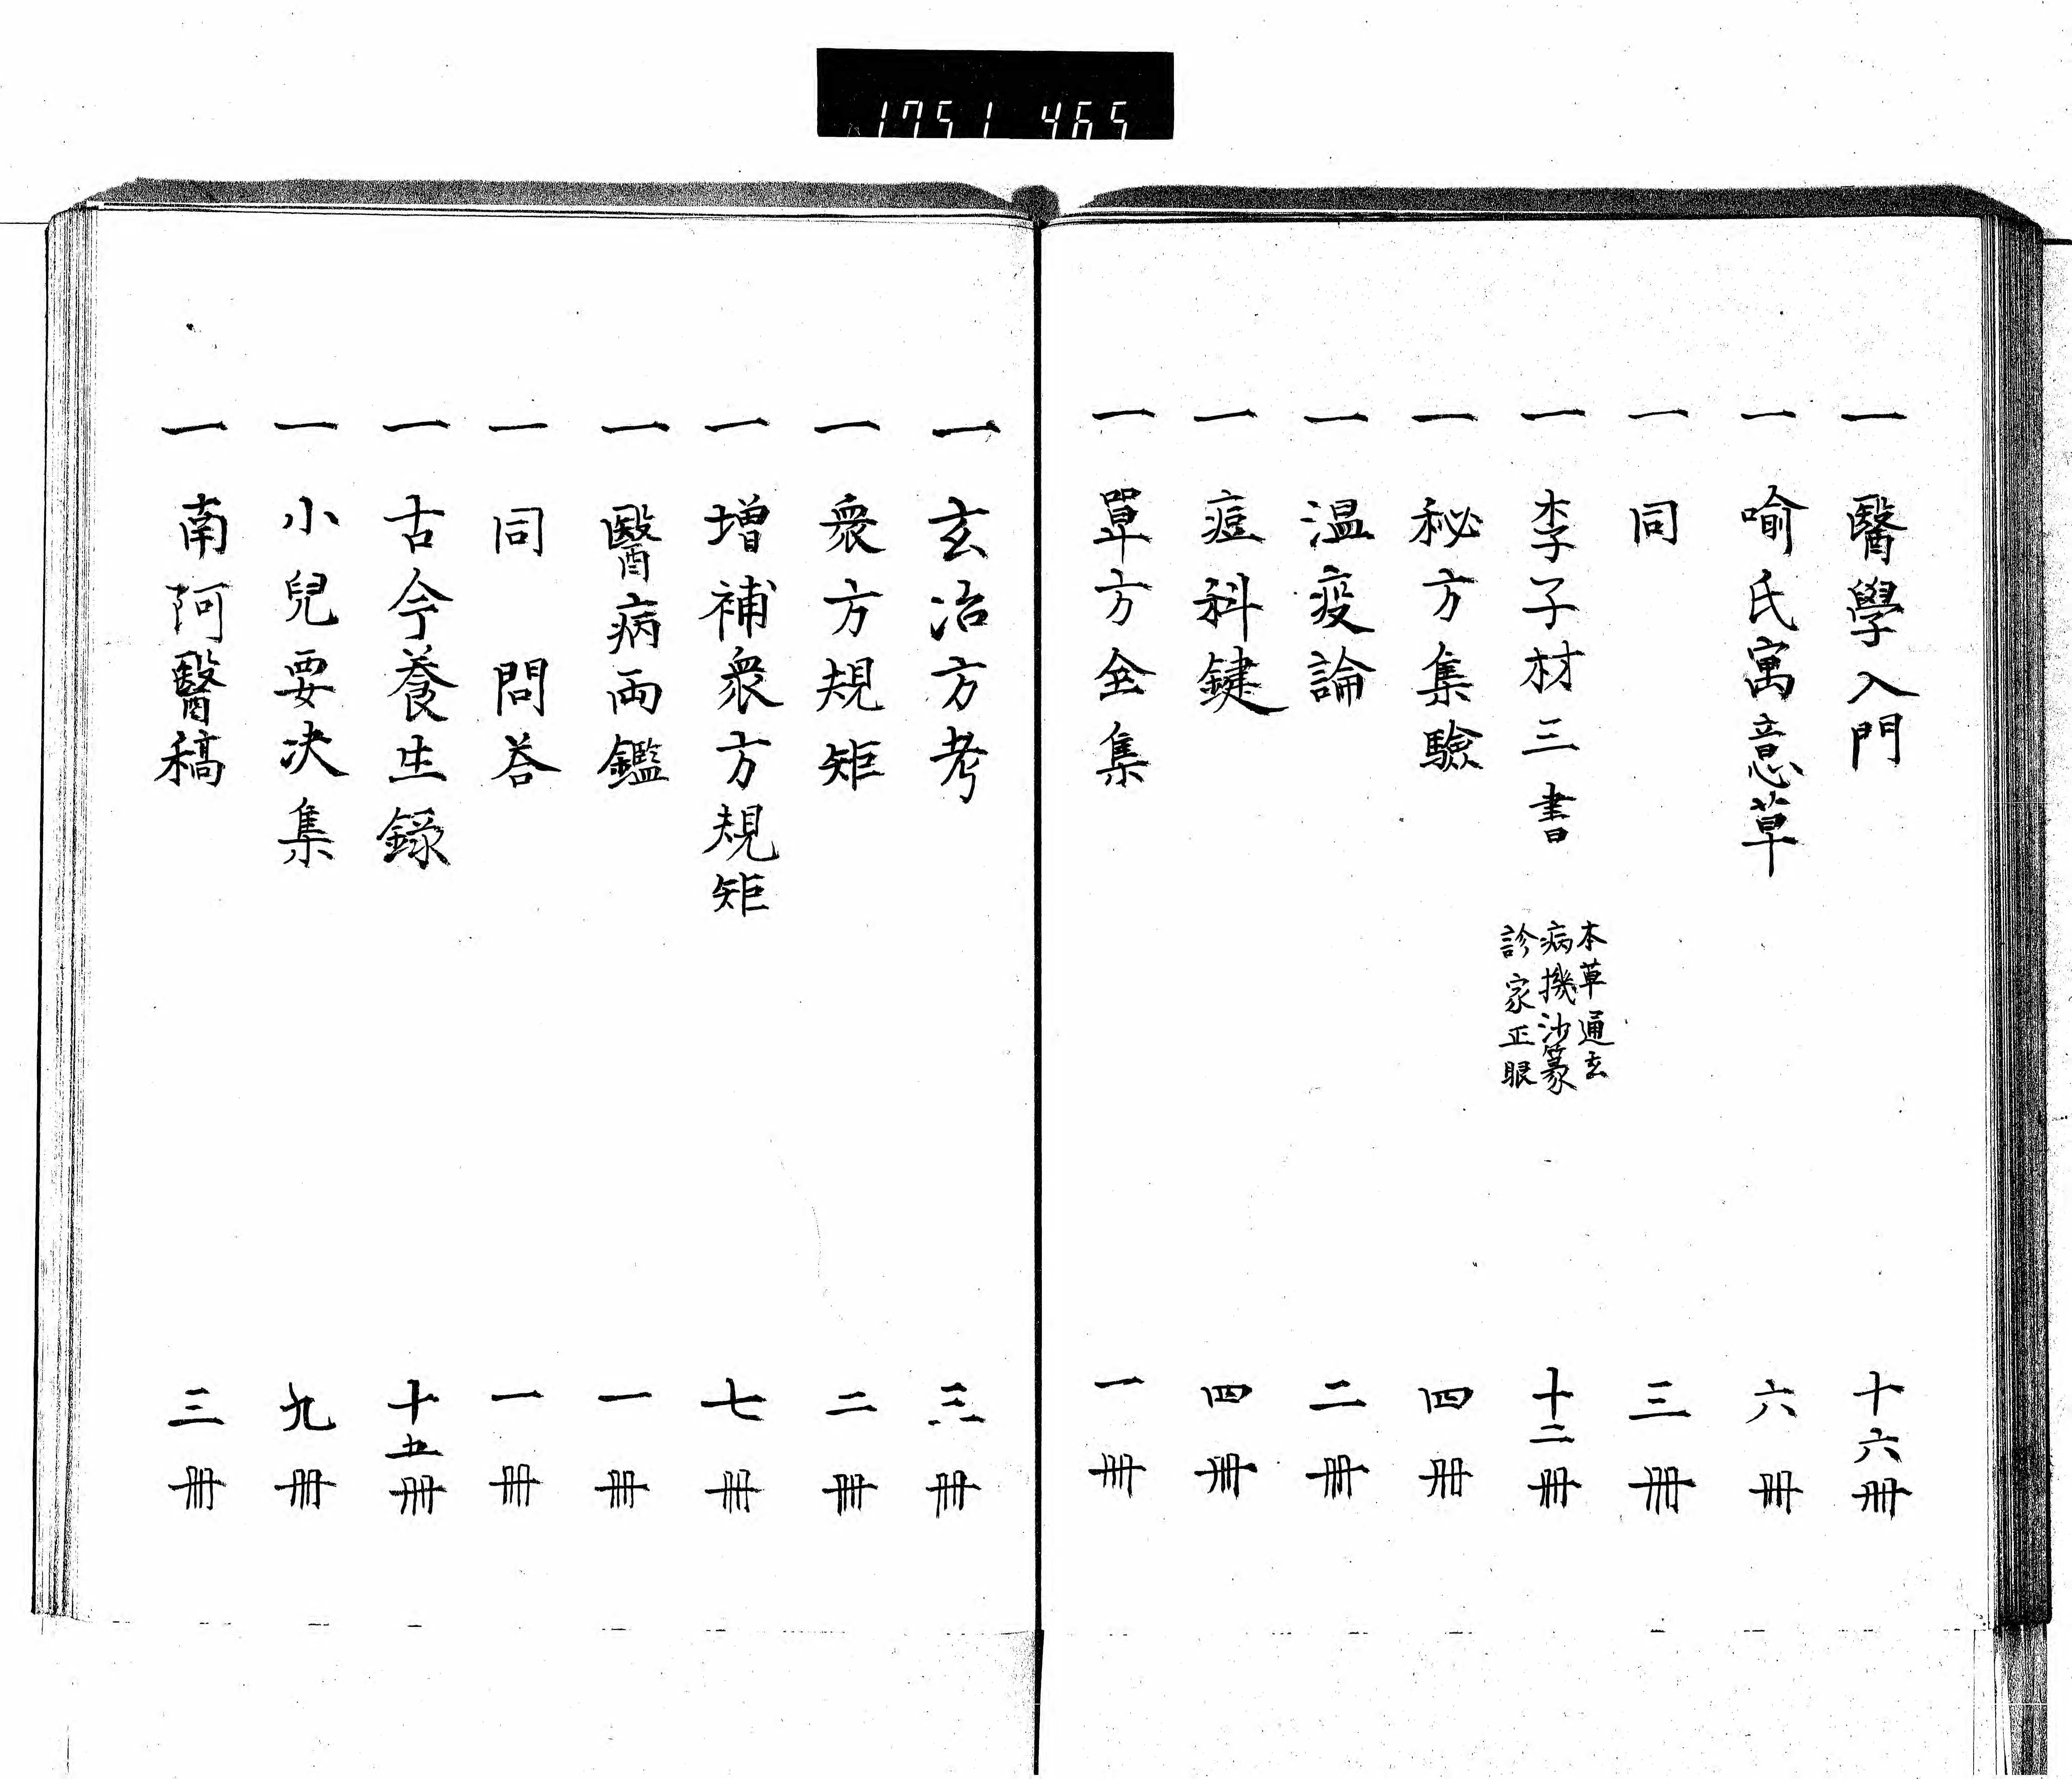 1751 465
一 醫學入門 十六冊
一 喻氏寓意草 六冊
一 同 三冊
一 李子材三書 本草通玄 病機沙篆 診家正眼 十二冊
一 秘方集驗 四冊
一 温疫論 二冊
一 痘科鍵 四冊
一 單方全集 一冊
一 玄冶方考 三冊
一 衆方規矩 二冊
一 增補衆方規矩 七冊
一 醫病両鑑 一冊
一 同 問荅 一冊
一 古今養生錄 十五冊
一 小兒要決集 九冊
一 南阿醫稿 三冊